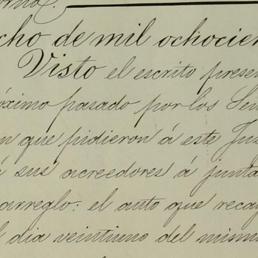 cho de mil ochocien
Visto el escrito presen
óximo pasado por los Se
n que pidieron á este Ju
á sus acreedores á junta
arreglo: el auto que reca
l dia veintiuno del mism